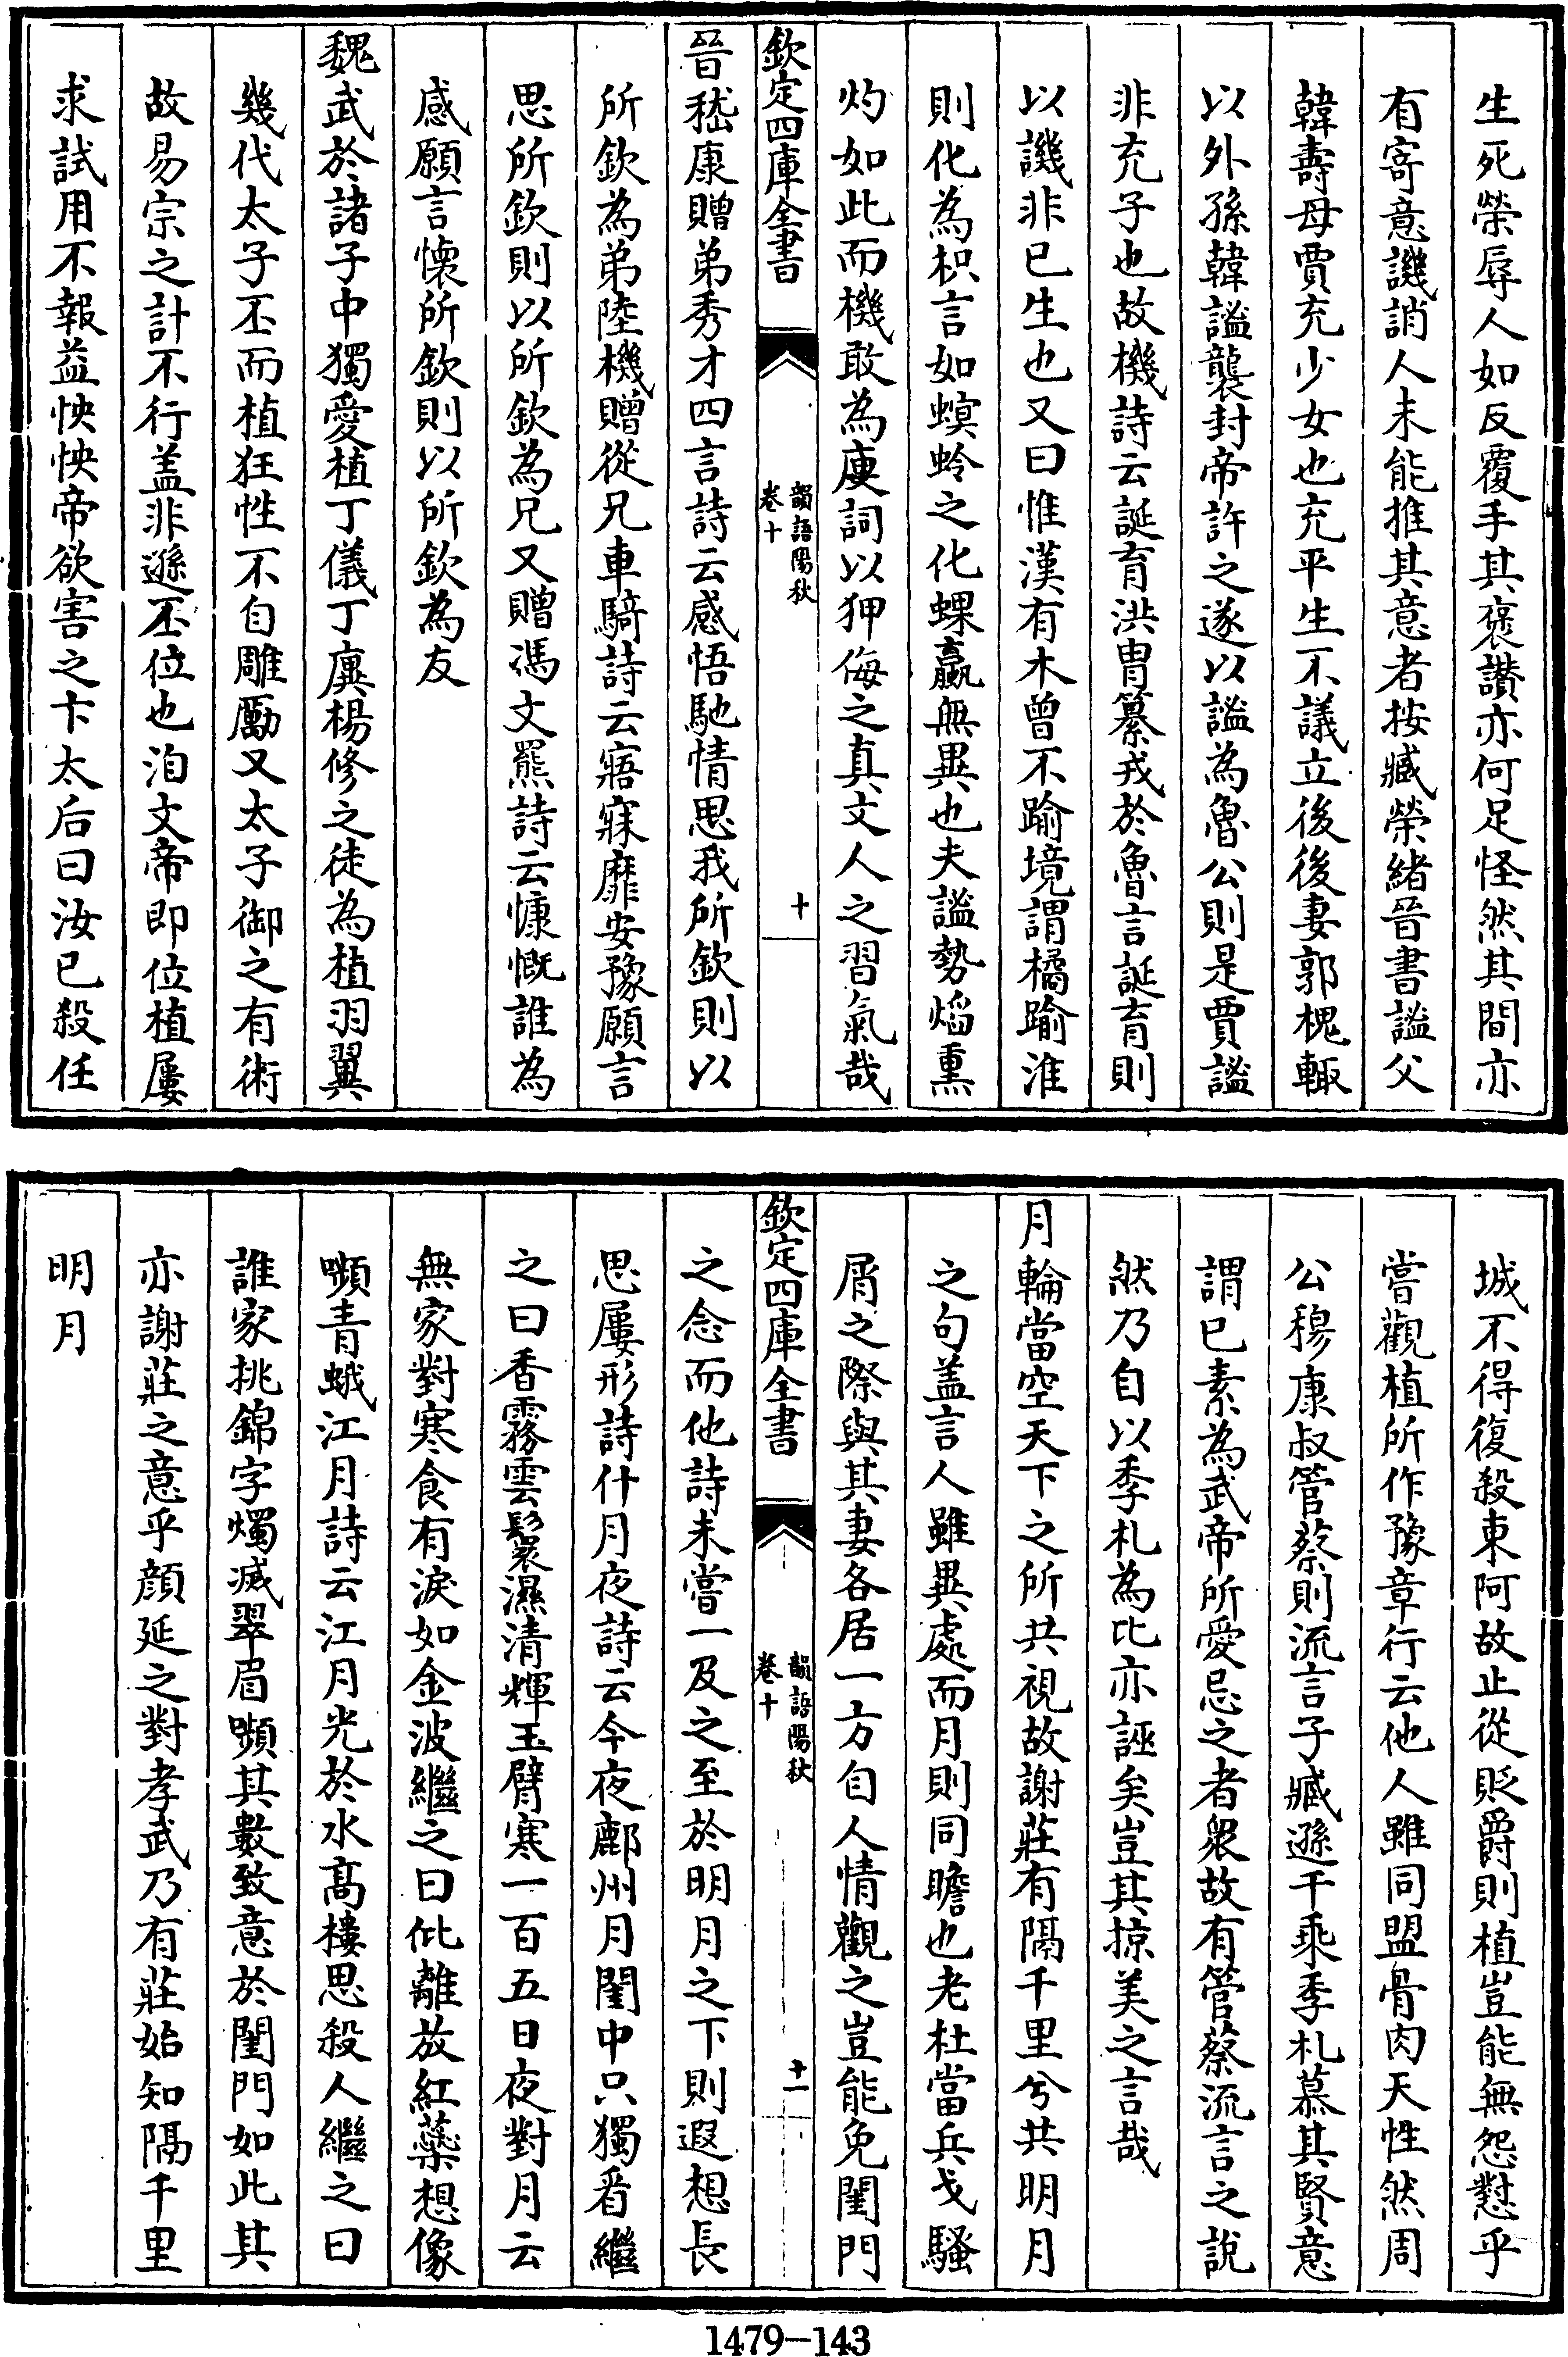 生死榮辱人如反覆手其褒讃亦何足怪然其間亦
有寄意譏誚人未能推其意者按臧榮緒晉書謐父
韓壽母賈充少女也充平生不議立後後妻郭槐輙
以外孫韓謐襲封帝許之遂以謐為魯公則是賈謐
非充子也故機詩云誕育洪胄纂戎於魯言誕育則
以譏非已生也又曰惟漢有木曾不踰境謂橘踰淮
則化為枳言如螟蛉之化蜾蠃無異也夫謐勢熖熏
灼如此而機敢為廋詞以狎侮之真文人之習氣哉
欽定四庫全書
韻語陽秋
卷十
十
晉嵇康贈弟秀才四言詩云感悟馳情思我所欽則以
所欽為弟陸機贈從兄車騎詩云寤寐靡安豫願言
思所欽則以所欽為兄又贈馮文羆詩云慷慨誰為
感願言懷所欽則以所欽為友
魏武於諸子中獨愛植丁儀丁廙楊修之徒為植羽翼
幾代太子丕而植狂性不自雕勵又太子御之有術
故易宗之計不行盖非遜丕位也洎文帝即位植屢
求試用不報益怏怏帝欲害之卞太后曰汝已殺任
城不得復殺東阿故止從貶爵則植豈能無怨懟乎
嘗觀植所作豫章行云他人雖同盟骨肉天性然周
公穆康叔管蔡則流言子臧遜千乘季札慕其賢意
謂已素為武帝所愛忌之者衆故有管蔡流言之說
然乃自以季札為比亦誣矣豈其掠美之言哉
月輪當空天下之所共視故謝莊有隔千里兮共明月
之句盖言人雖異處而月則同瞻也老杜當兵戈騷
屑之際與其妻各居一方自人情觀之豈能免閨門
欽定四庫全書
韻語陽秋
卷十
十一
之念而他詩未嘗一及之至於明月之下則遐想長
思屢形詩什月夜詩云今夜鄜州月閨中只獨看繼
之曰香霧雲鬟濕清輝玉臂寒一百五日夜對月云
無家對寒食有淚如金波繼之曰仳離放紅蘂想像
嚬青蛾江月詩云江月光於水髙樓思殺人繼之曰
誰家挑錦字燭滅翠眉嚬其數致意於閨門如此其
亦謝莊之意乎顔延之對孝武乃有莊始知隔千里
明月
1479-143